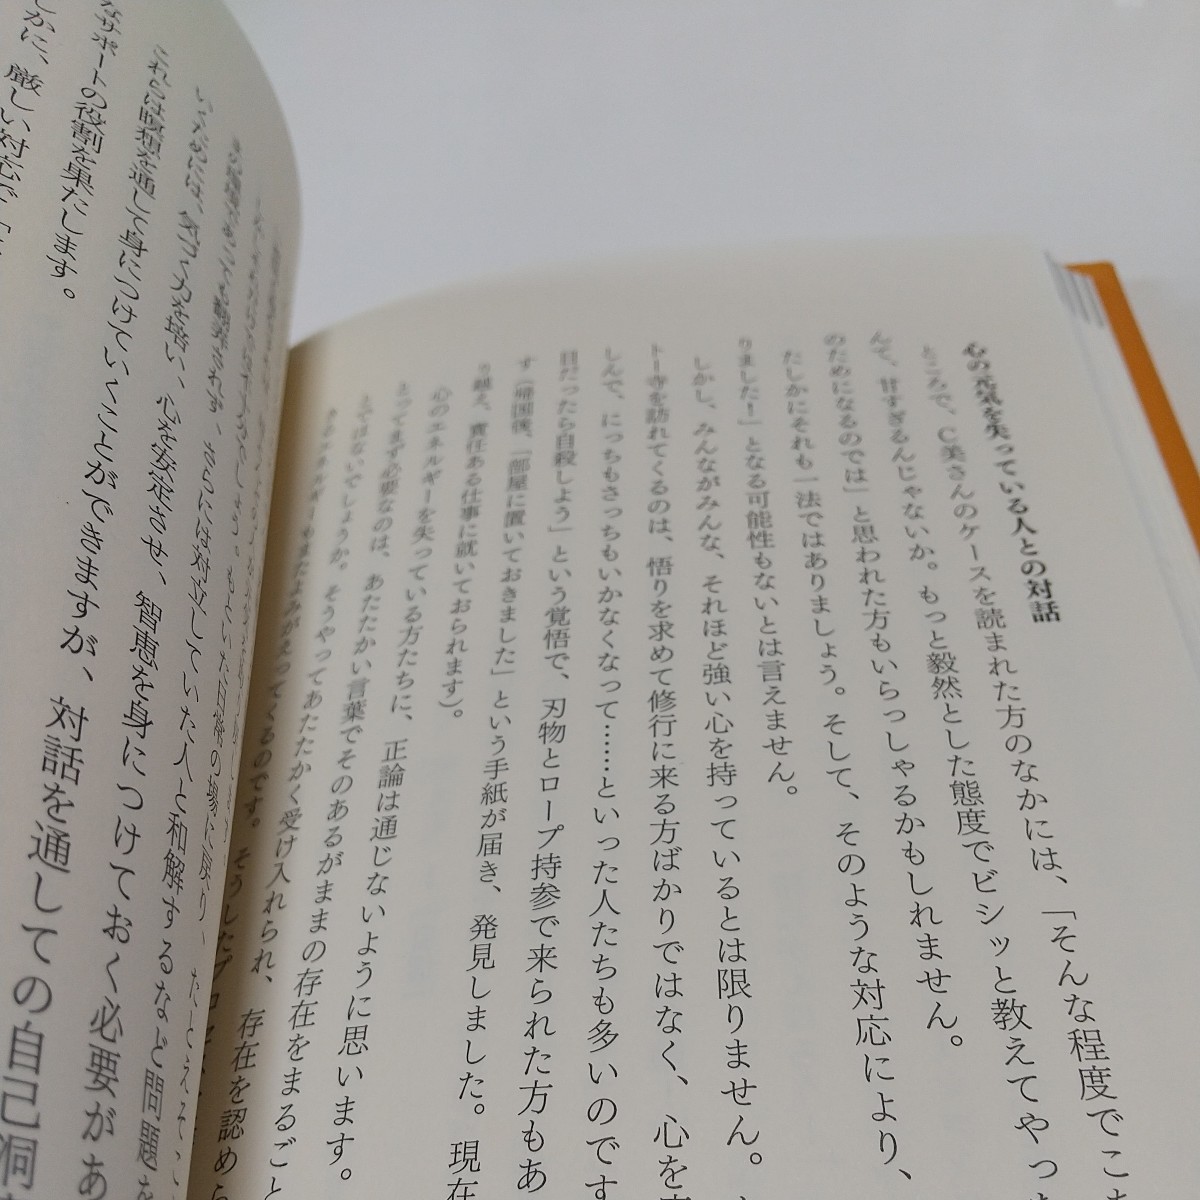 心の元気を失っている人との対話
ところで、C美さんのケースを読まれた方のなかには、「そんな程度でこ
んて、甘すぎるんじゃないか。もっと毅然とした態度でビシッと教えてやっ
のためになるのでは」と思われた方もいらっしゃるかもしれません。
たしかにそれも一法ではありましょう。そして、そのような対応により、
りました!」となる可能性もないとは言えません。
しかし、みんながみんな、それほど強い心を持っているとは限りません。
トー寺を訪れてくるのは、悟りを求めて修行に来る方ばかりではなく、心を
しんで、にっちもさっちもいかなくなって……といった人たちも多いのです
目だったら自殺しよう」という覚悟で、刃物とロープ持参で来られた方もあ
す(帰国後、「部屋に置いておきました」という手紙が届き、発見しました。現在
り越え、責任ある仕事に就いておられます)。
心のエネルギーを失っている方たちに、正論は通じないように思います。
とってまず必要なのは、あたたかい言葉でそのあるがままの存在をまるごと
とではないでしょうか。そうやってあたたかく受け入れられ、存在を認め
きるエネルギーもまたよみがえってくるのです。そうしたプロセス
いくためには、気づく力を培い、心を安定させ、智恵を身につけておく必要があ
これらは瞑想を通して身につけていくことができますが、対話を通しての自己洞
なサポートの役割を果たします。
しかに、厳しい対応で「